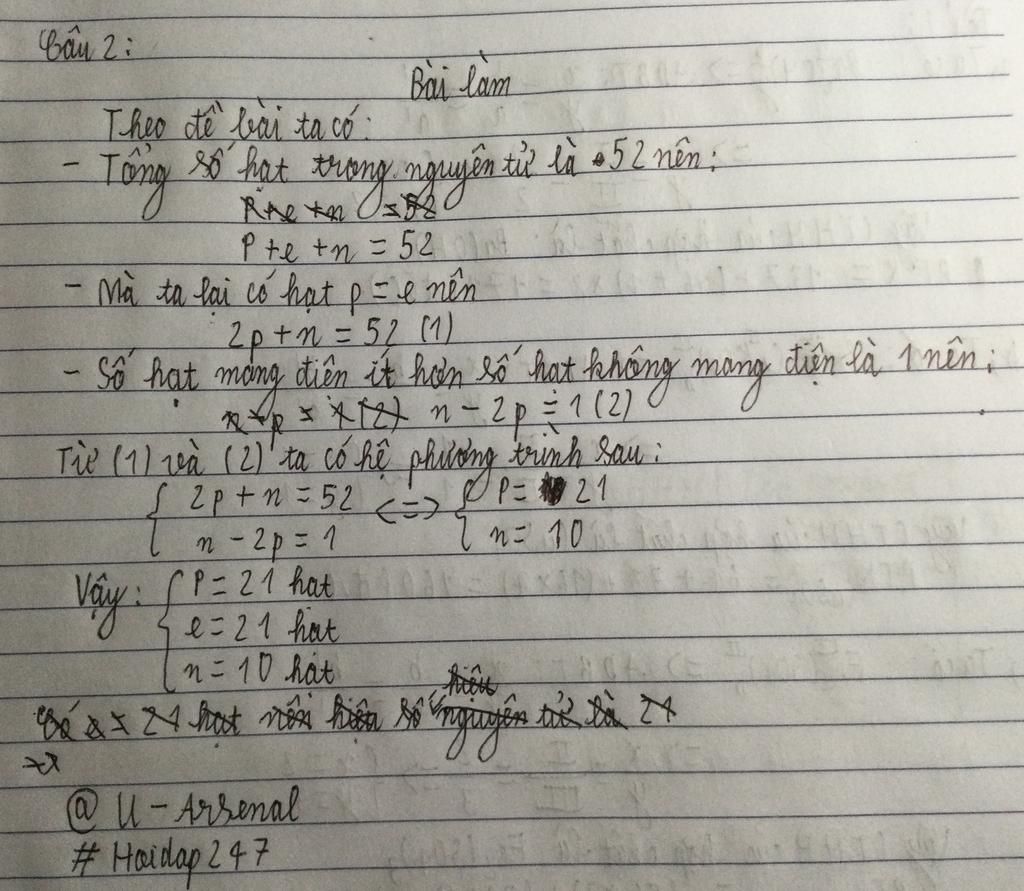 Câu 2:
Bài làm
Theo đề bài ta có:
- Tổng số hạt trong nguyên tử là 52 nên:
P+e+n = 52
P+e+n = 52
- Mà ta lại có hạt p = e nên
2p+n = 52 (1)
- Số hạt mang điên ít hơn số hạt không mang điện là 1 nên:
n-p = 1(2) n - 2p = 1 (2)
Từ (1) và (2) ta có hệ phương trình sau:
{ 2p+n = 52 <=> { P = 21
n - 2p = 1 n = 10
Vậy: { P = 21 hạt
e = 21 hạt
n = 10 hạt
hiệu
Số e = 21 hạt nên hiệu số nguyên tử là 21
=>
@ U - Arsenal
# Hoidap247